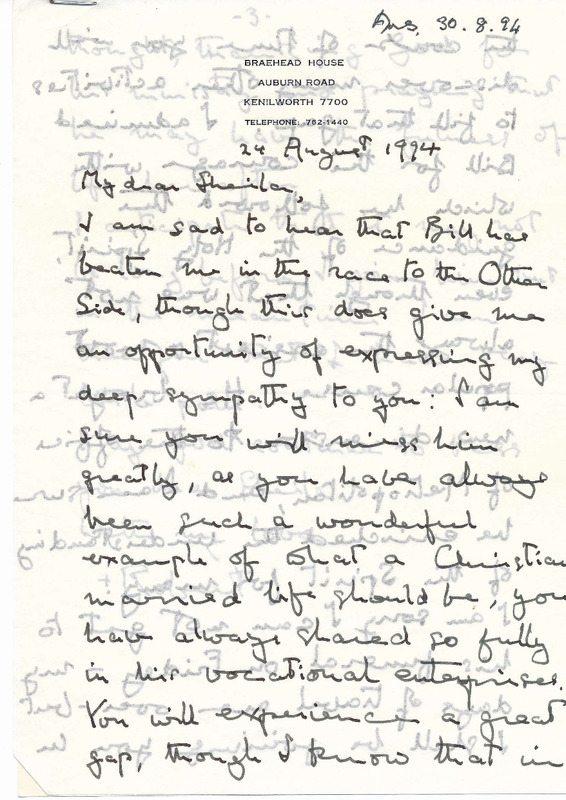 Ans. 30.8.94
BRAEHEAD HOUSE
AUBURN ROAD
KENILWORTH 7700
TELEPHONE: 762-1440
24 August 1994
My dear Sheila,
I am sad to hear that Bill has
beaten me in the race to the Other
Side, though this does give me
an opportunity of expressing my
deep sympathy to you: I am
sure you will miss him
greatly, as you have always
been such a wonderful
example of what a Christian
married life should be, you
have always shared so fully
in his vocational enterprises.
You will experience a great
gap, though I know that in